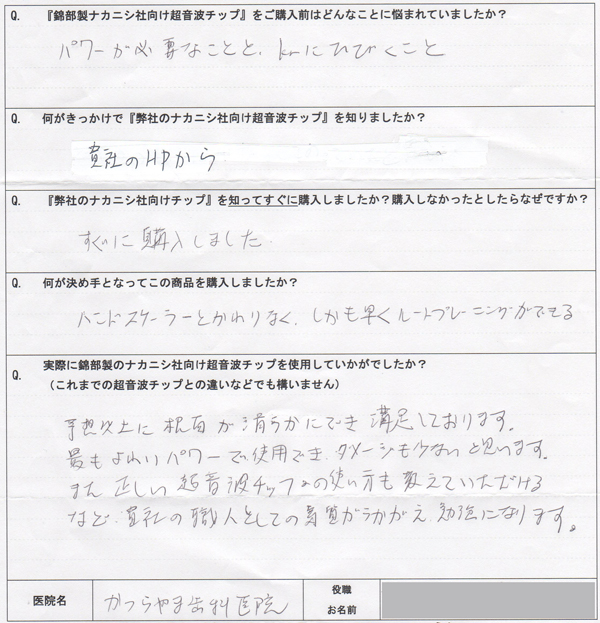 Q. 『錦部製ナカニシ社向け超音波チップ』をご購入前はどんなことに悩まれていましたか？
パワーが必要なことと、Krにひびくこと
Q. 何がきっかけで『弊社のナカニシ社向け超音波チップ』を知りましたか？
貴社のHPから
Q. 『弊社のナカニシ社向けチップ』を知ってすぐに購入しましたか？購入しなかったとしたらなぜですか？
すぐに購入しました.
Q. 何が決め手となってこの商品を購入しましたか？
ハンドスケーラーとかわりなく、しかも早くルートプレーニングができる
Q. 実際に錦部製のナカニシ社向け超音波チップを使用していかがでしたか？
（これまでの超音波チップとの違いなどでも構いません）
予想以上に根面が滑らかにでき満足しております。
最もよわいパワーで使用でき、ダメージも少ないと思います。
また正しい超音波チップの使い方も教えていただける
など、貴社の職人としての気質がうかがえ、勉強になります。
医院名 かつらやま歯科医院 役職
お名前